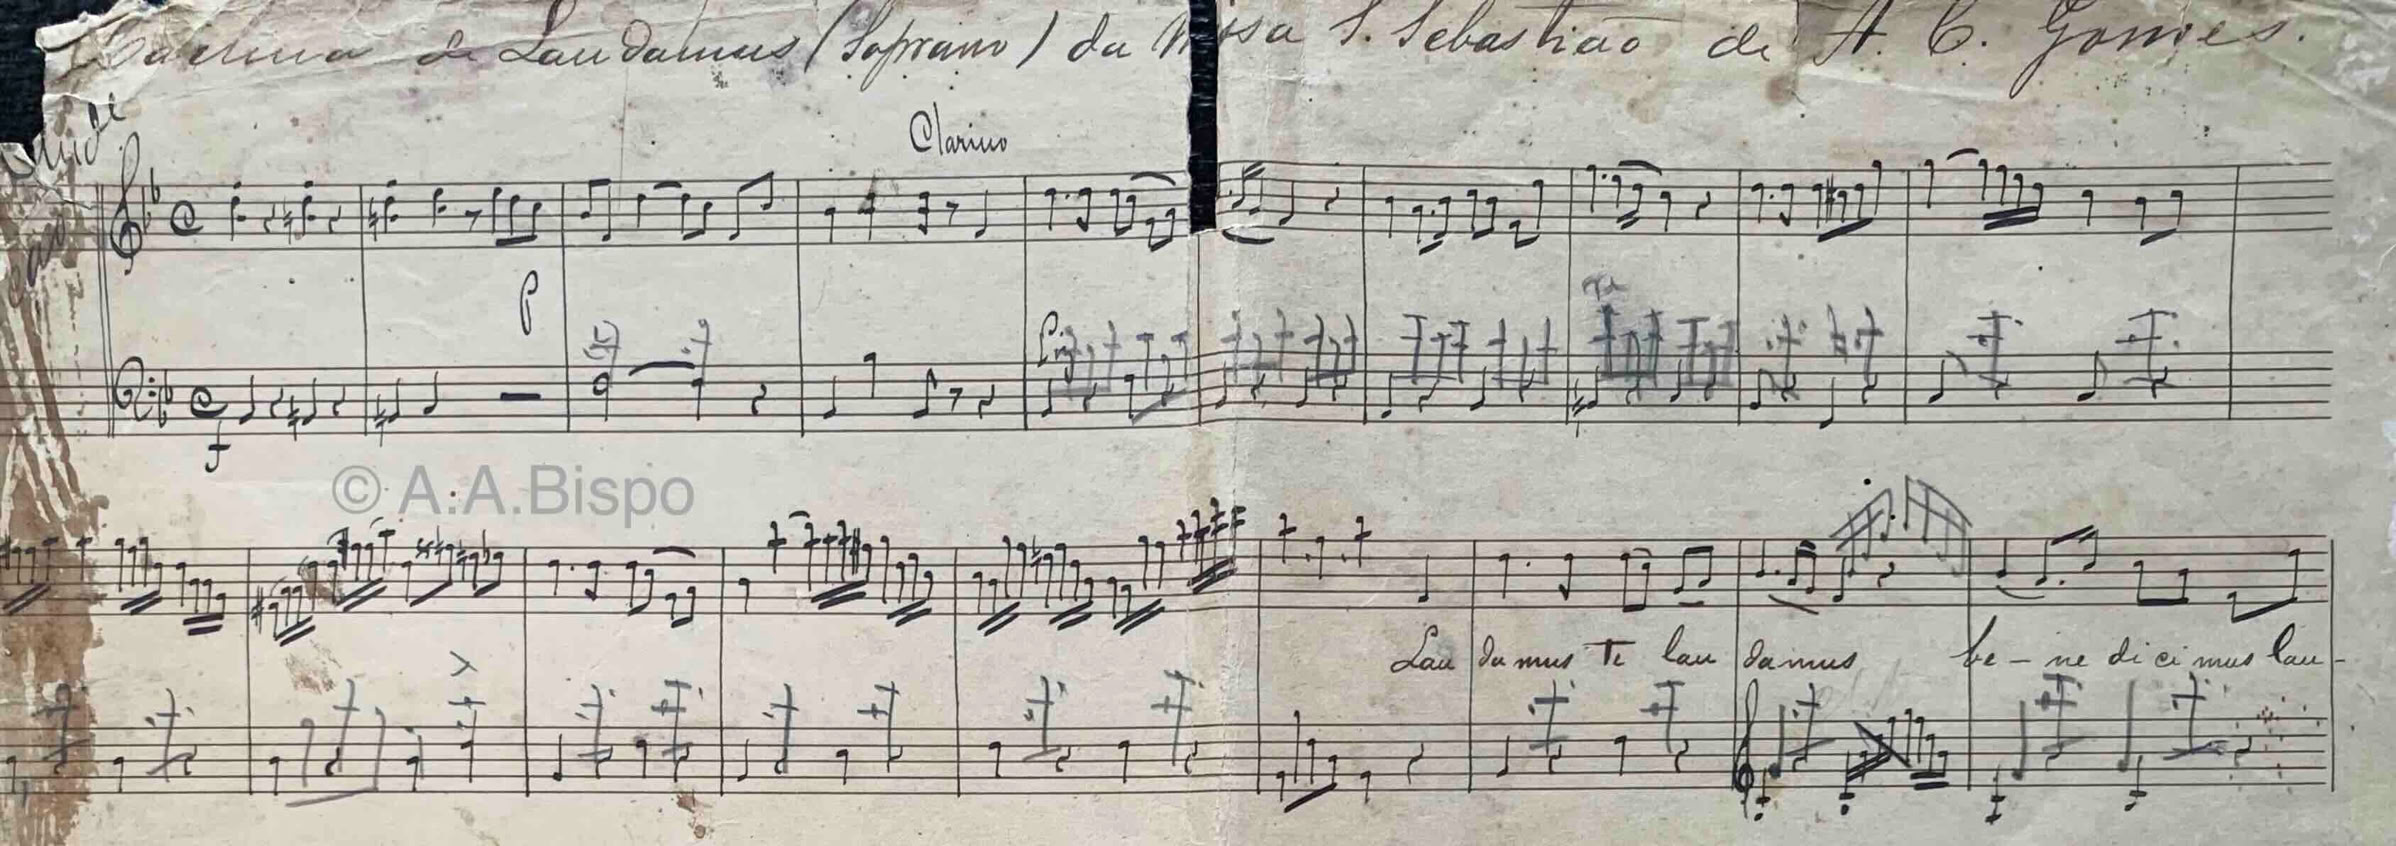 de Laudamus (Soprano) da Missa S. Sebastião de A. C. Gomes.
Clarino
p
f
© A.A.Bispo
Lau damus Te lau damus be - ne di ci mus lau -